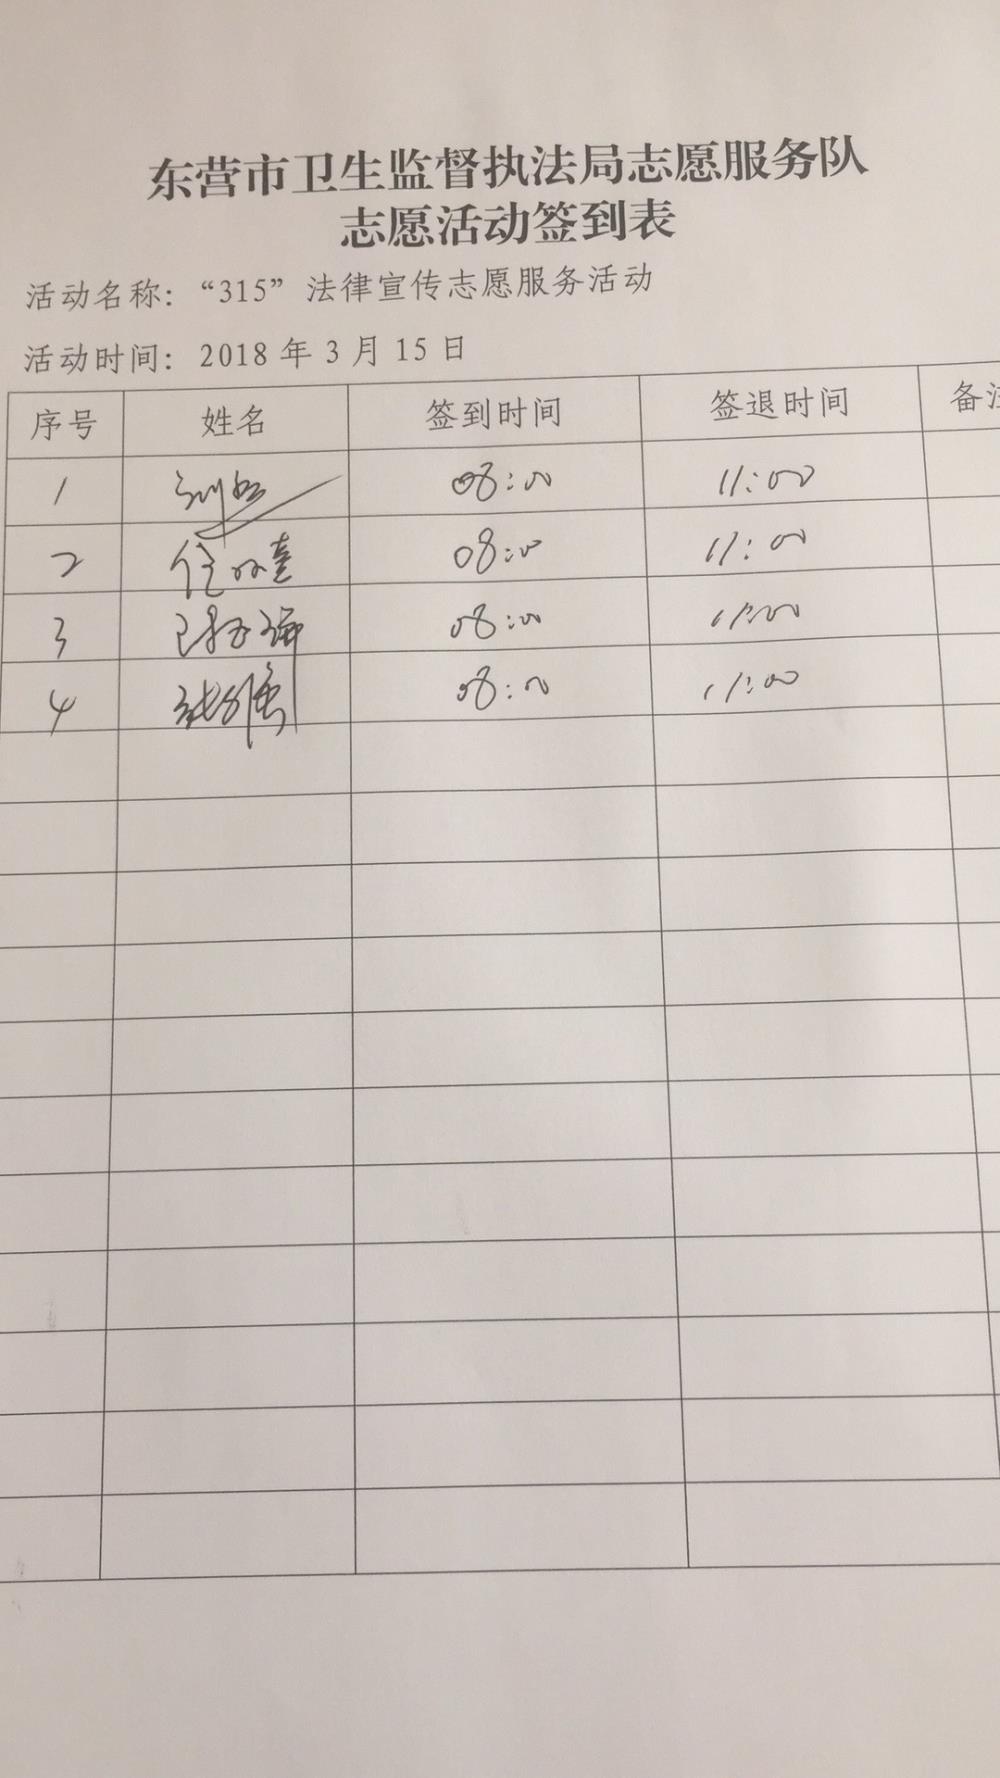 东营市卫生监督执法局志愿服务队
志愿活动签到表
活动名称：“315”法律宣传志愿服务活动
活动时间：2018年3月15日
序号 姓名 签到时间 签退时间 备注
1 08:00 11:00
2 08:00 11:00
3 08:00 11:00
4 08:00 11:00